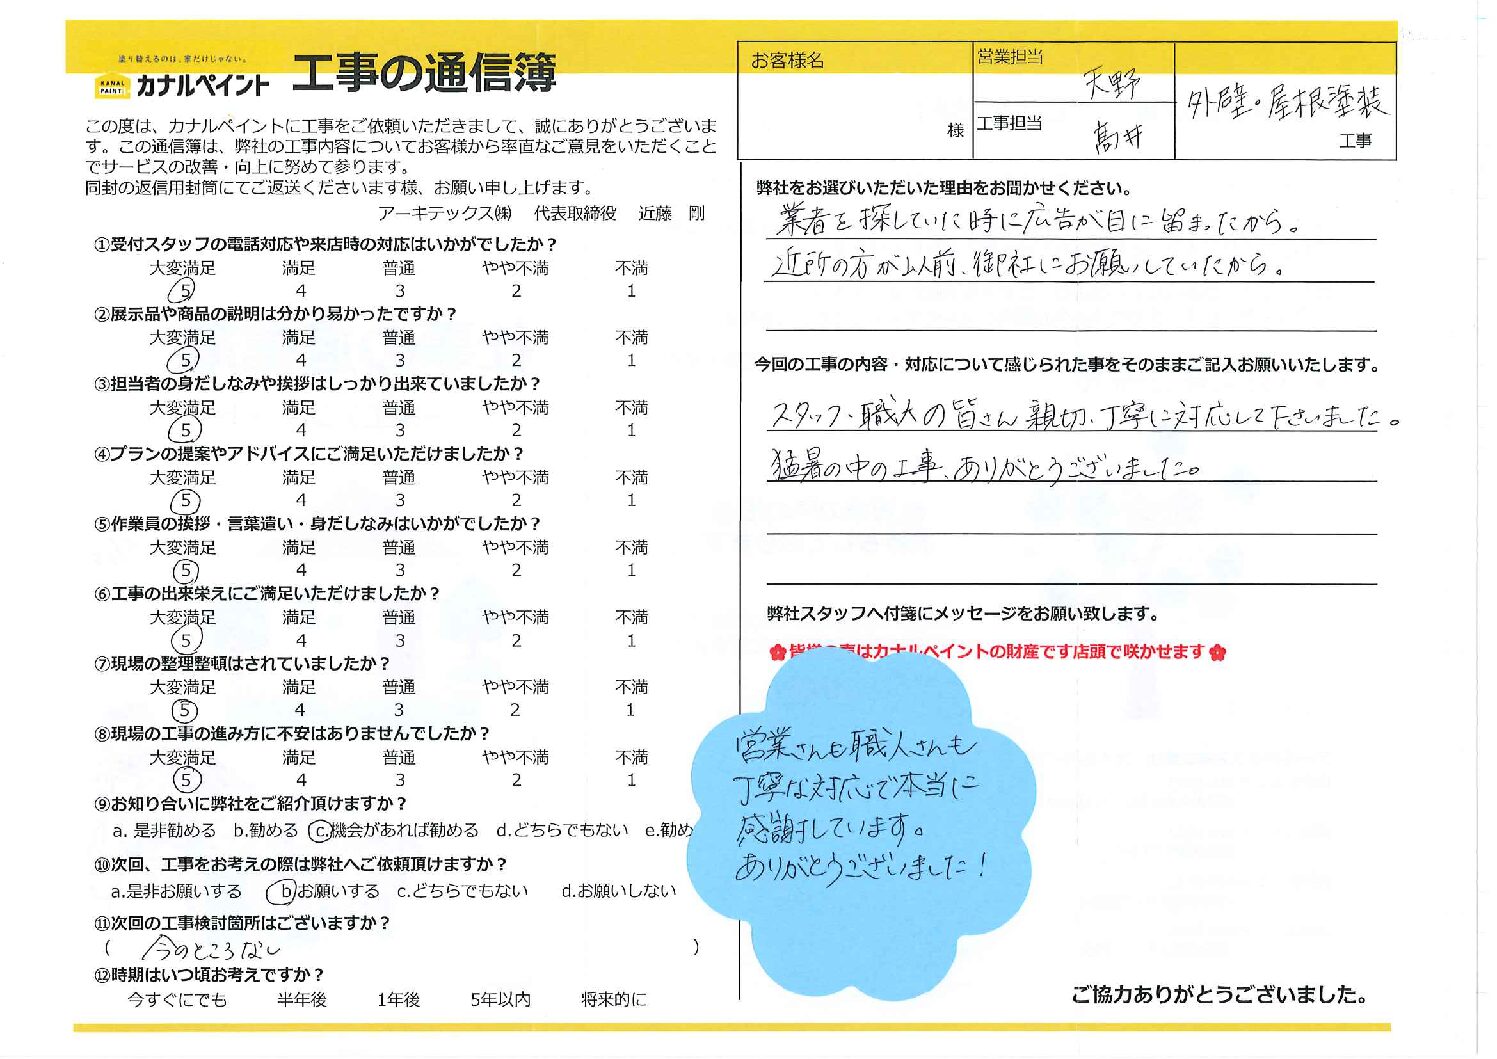 塗り替えるのは、家だけじゃない。
KANAL PAINT
カナルペイント 工事の通信簿
お客様名
様
営業担当 天野
工事担当 髙井
外壁・屋根塗装
工事
この度は、カナルペイントに工事をご依頼いただきまして、誠にありがとうございま
す。この通信簿は、弊社の工事内容についてお客様から率直なご意見をいただくこと
でサービスの改善・向上に努めて参ります。
同封の返信用封筒にてご返送くださいます様、お願い申し上げます。
アーキテックス㈱ 代表取締役 近藤 剛
①受付スタッフの電話対応や来店時の対応はいかがでしたか？
大変満足 満足 普通 やや不満 不満
5 4 3 2 1
②展示品や商品の説明は分かり易かったですか？
大変満足 満足 普通 やや不満 不満
5 4 3 2 1
③担当者の身だしなみや挨拶はしっかり出来ていましたか？
大変満足 満足 普通 やや不満 不満
5 4 3 2 1
④プランの提案やアドバイスにご満足いただけましたか？
大変満足 満足 普通 やや不満 不満
5 4 3 2 1
⑤作業員の挨拶・言葉遣い・身だしなみはいかがでしたか？
大変満足 満足 普通 やや不満 不満
5 4 3 2 1
⑥工事の出来栄えにご満足いただけましたか？
大変満足 満足 普通 やや不満 不満
5 4 3 2 1
⑦現場の整理整頓はされていましたか？
大変満足 満足 普通 やや不満 不満
5 4 3 2 1
⑧現場の工事の進み方に不安はありませんでしたか？
大変満足 満足 普通 やや不満 不満
5 4 3 2 1
⑨お知り合いに弊社をご紹介頂けますか？
a. 是非勧める b.勧める c.機会があれば勧める d.どちらでもない e.勧め
⑩次回、工事をお考えの際は弊社へご依頼頂けますか？
a.是非お願いする b お願いする c.どちらでもない d.お願いしない
⑪次回の工事検討箇所はございますか？
( 今のところなし )
⑫時期はいつ頃お考えですか？
今すぐにでも 半年後 1年後 5年以内 将来的に
弊社をお選びいただいた理由をお聞かせください。
業者を探していた時に広告が目に留まったから。
近所の方が以前、御社にお願いしていたから。
今回の工事の内容・対応について感じられた事をそのままご記入お願いいたします。
スタッフ・職人の皆さん親切、丁寧に対応して下さいました。
猛暑の中の工事、ありがとうございました。
弊社スタッフへ付箋にメッセージをお願い致します。
はカナルペイントの財産です店頭で咲かせます
営業さんも職人さんも
丁寧な対応で本当に
感謝しています。
ありがとうございました！
ご協力ありがとうございました。